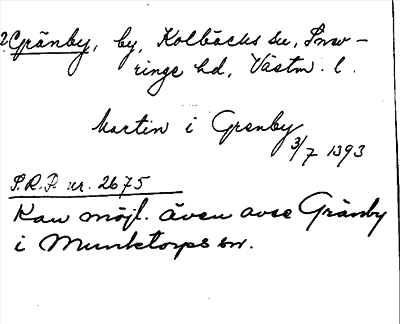 2. Gränby, by, Kolbäcks sn, Snev-
ringe hd, Västm. l.
Martin i Grenby
3/7 1393
S.R.P. nr. 2675
Kan möjl. även avse Gränby
i Munktorps sn.